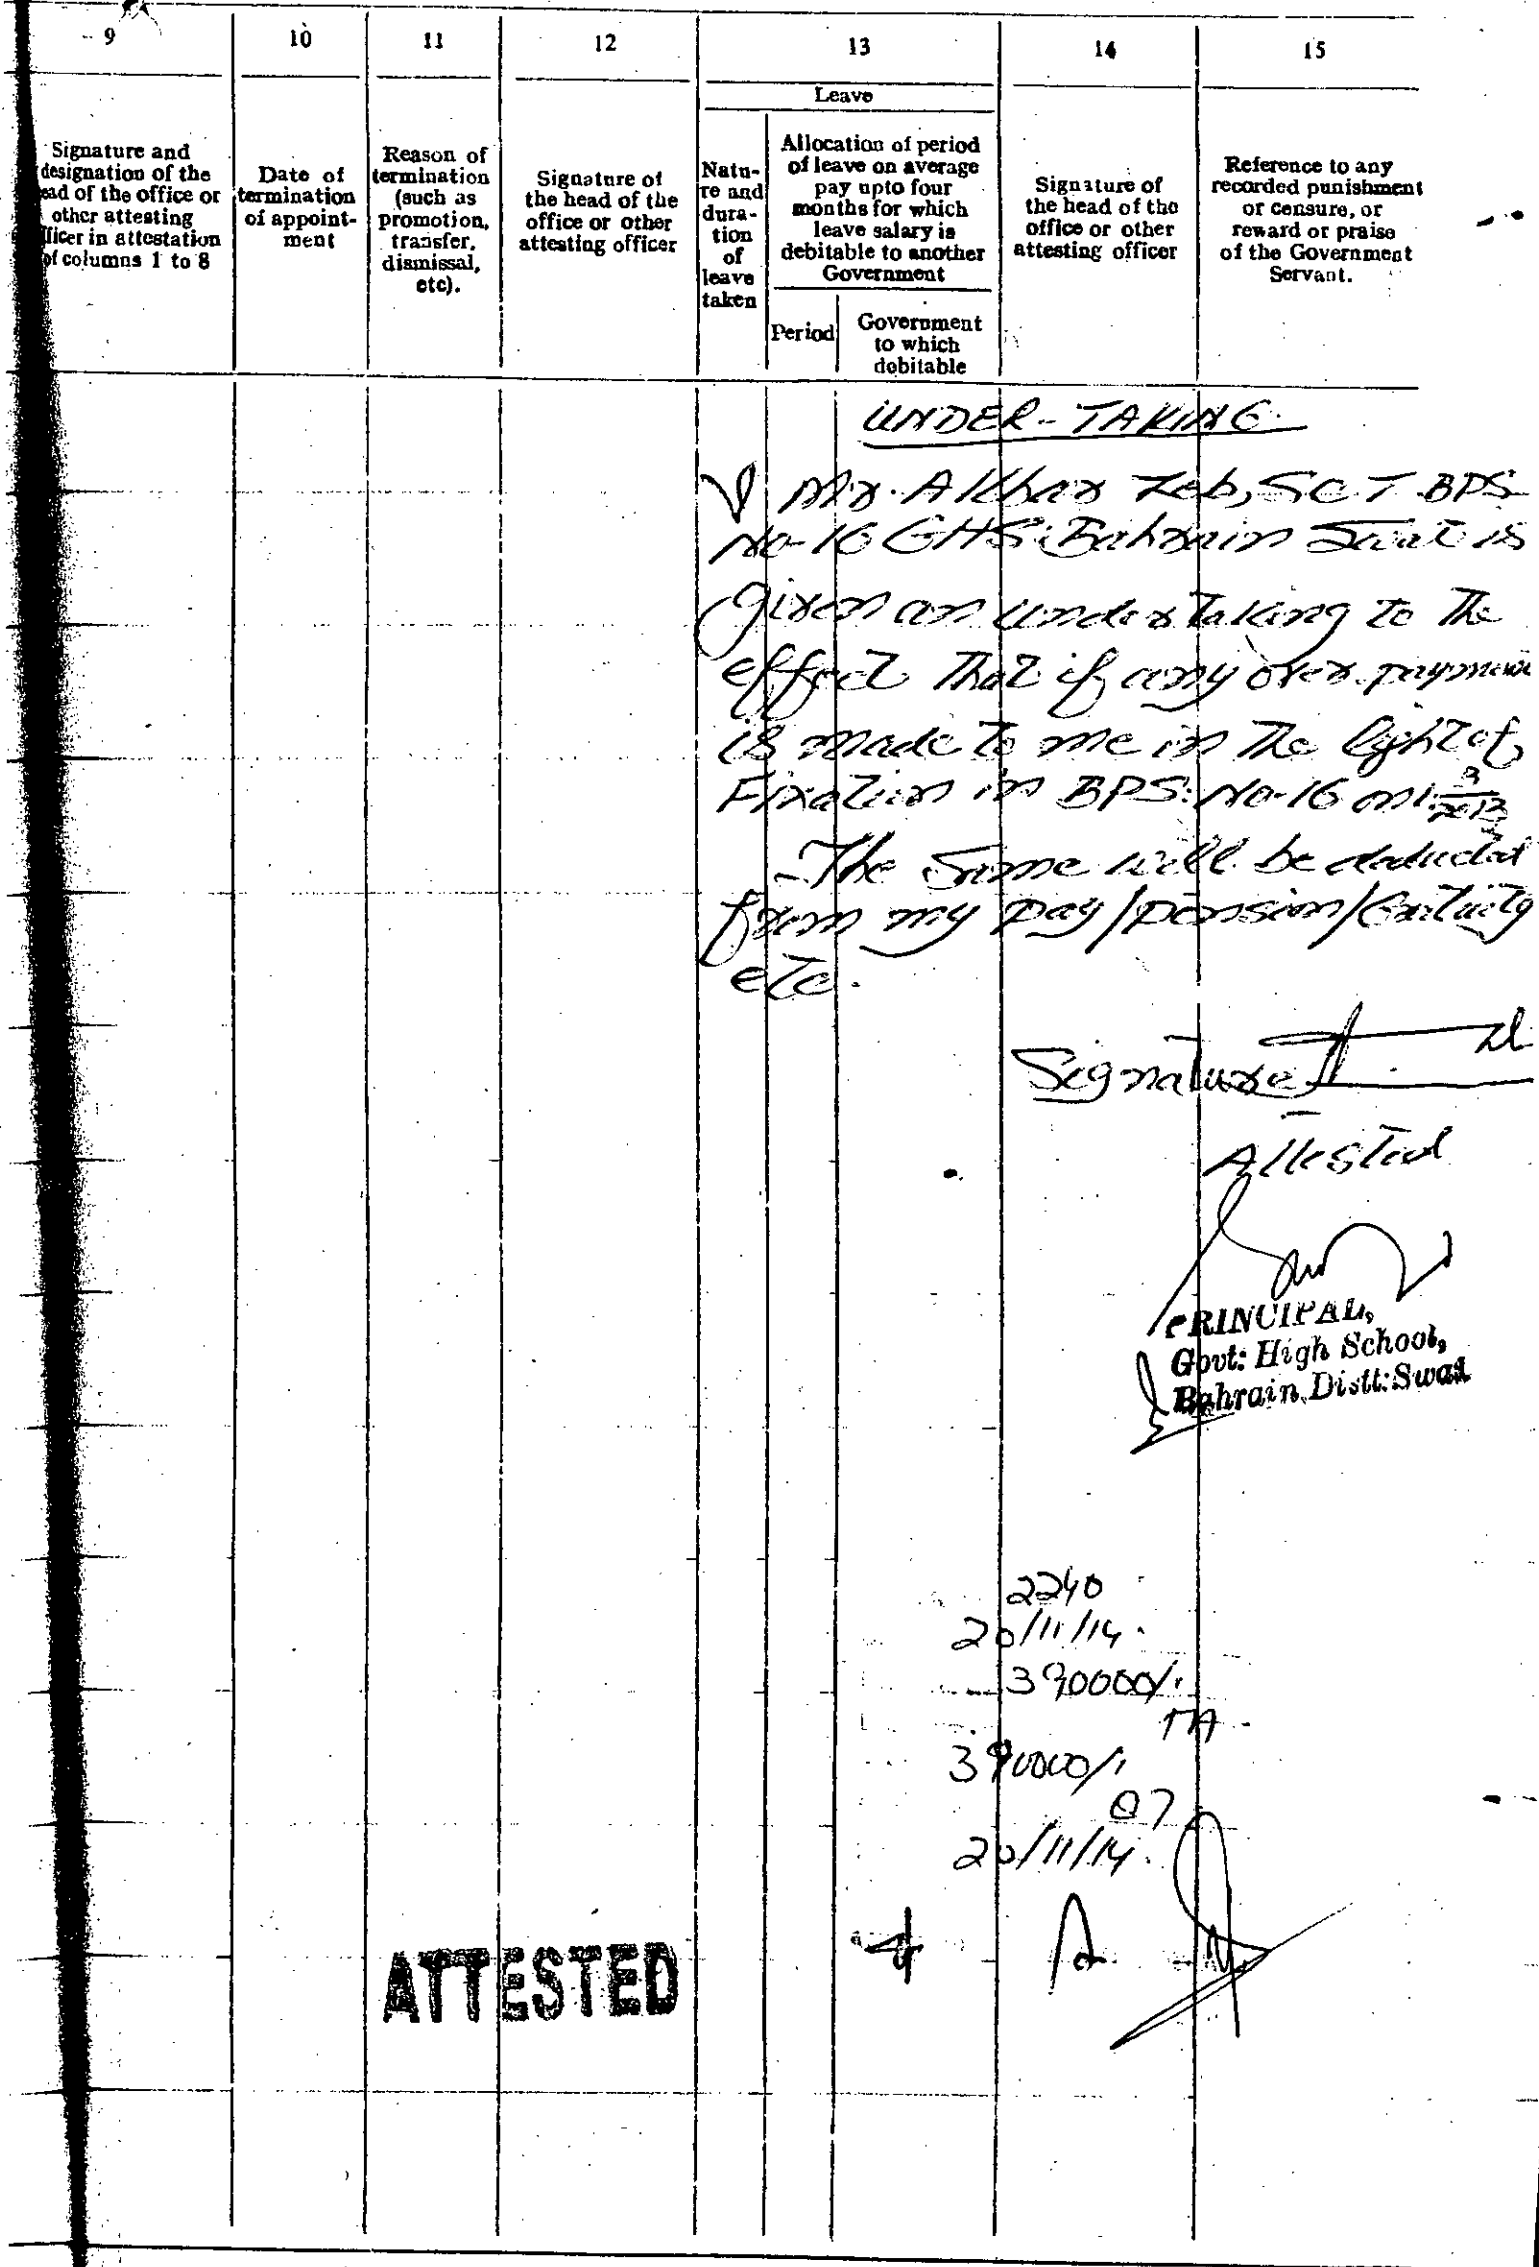 9 10 11 12 13 14 15
Leave
Signature and
designation of the
ead of the office or
other attesting
fficer in attestation
of columns 1 to 8
Date of
termination
of appoint-
ment
Reason of
termination
(such as
promotion,
transfer,
dismissal,
etc).
Signature of
the head of the
office or other
attesting officer
Natu-
re and
dura-
tion
of
leave
taken
Allocation of period
of leave on average
pay upto four
months for which
leave salary is
debitable to another
Government
Period
Government
to which
debitable
Signature of
the head of the
office or other
attesting officer
Reference to any
recorded punishment
or censure, or
reward or praise
of the Government
Servant.
UNDER-TAKING
Mr. Akbar Zeb, SCT BPS
No-16 GHS: Bahrain Swat is
given an undertaking to the
effect that if any over payment
is made to me in the light of
Fixation in BPS: No-16 on 1-3/2013
The same will be deducted
from my pay/pension/
etc.
Signature
Attested
PRINCIPAL,
Govt: High School,
Bahrain, Distt: Swat
2240
20/11/14.
390000/.
390000/.
07
20/11/14.
ATTESTED